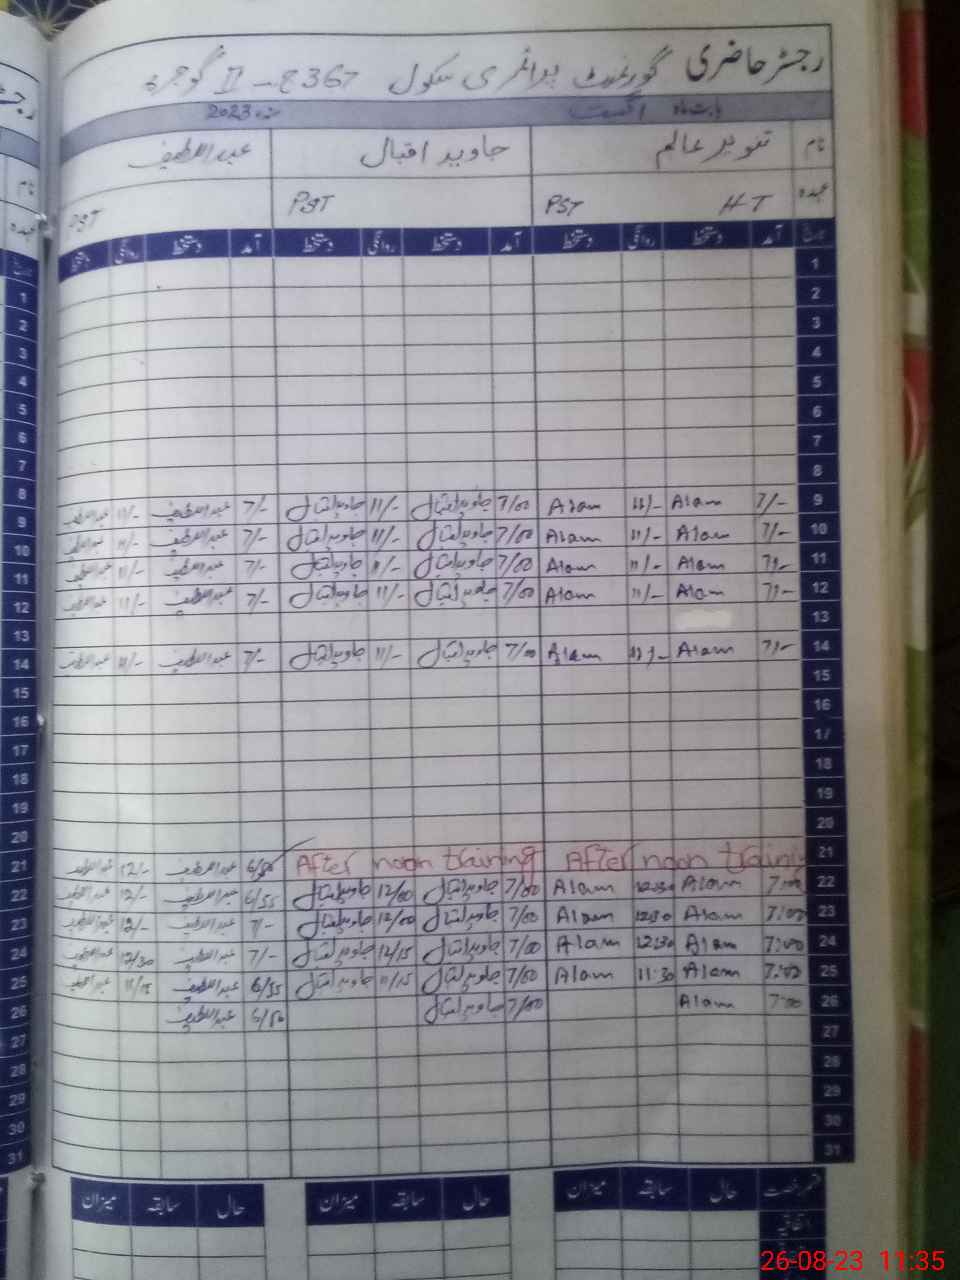 رجسٹر حاضری گورنمنٹ پرائمری سکول 367 ج ـ II گوجرہ
بابت ماہ اگست سنہ 2023
نام تنویر عالم جاوید اقبال عبداللطیف
عہدہ H T PST PST PST
تاریخ آمد دستخط روانگی دستخط آمد دستخط روانگی دستخط آمد دستخط روانگی دستخط
1
2
3
4
5
6
7
8
9 7/- Alam 11/- Alam 7/00 جاوید اقبال 11/- جاوید اقبال 7/- عبداللطیف 11/- عبداللطیف
10 7/- Alam 11/- Alam 7/00 جاوید اقبال 11/- جاوید اقبال 7/- عبداللطیف 11/- عبداللطیف
11 7/- Alam 11/- Alam 7/00 جاوید اقبال 11/- جاوید اقبال 7/- عبداللطیف 11/- عبداللطیف
12 7/- Alam 11/- Alam 7/00 جاوید اقبال 11/- جاوید اقبال 7/- عبداللطیف 11/- عبداللطیف
13
14 7/- Alam 11/- Alam 7/00 جاوید اقبال 11/- جاوید اقبال 7/- عبداللطیف 11/- عبداللطیف
15
16
17
18
19
20
21 After noon training After noon training 6/50 عبداللطیف 12/- عبداللطیف
22 7:00 Alam 12:30 Alam 7/00 جاوید اقبال 12/00 جاوید اقبال 6/55 عبداللطیف 12/- عبداللطیف
23 7:00 Alam 12:30 Alam 7/00 جاوید اقبال 12/00 جاوید اقبال 7/- عبداللطیف 12/- عبداللطیف
24 7:00 Alam 12:30 Alam 7/00 جاوید اقبال 12/15 جاوید اقبال 7/- عبداللطیف 12/30 عبداللطیف
25 7:00 Alam 11:30 Alam 7/00 جاوید اقبال 11/15 جاوید اقبال 6/55 عبداللطیف 11/15 عبداللطیف
26 7:00 Alam 7/00 جاوید اقبال 6/50 عبداللطیف
27
28
29
30
31
قسم رخصت حال سابقہ میزان حال سابقہ میزان حال سابقہ میزان
اتفاقیہ
26-08-23 11:35